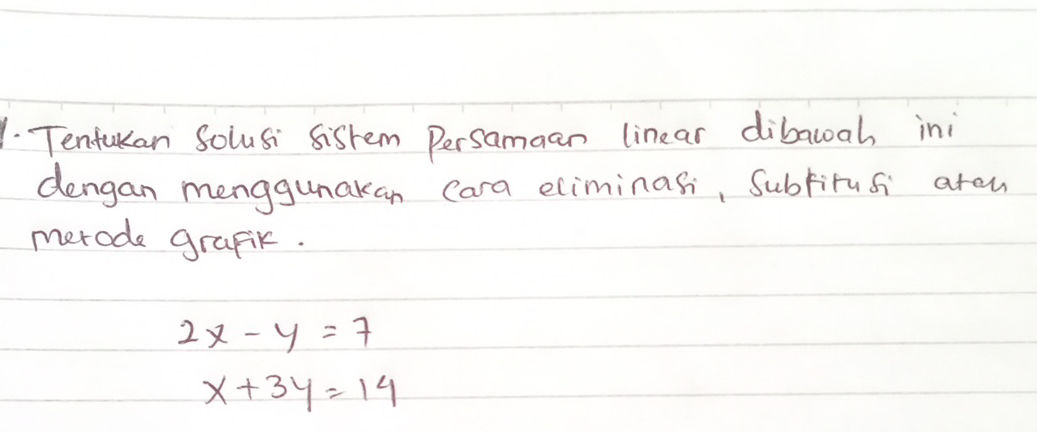 1. Tentukan Solusi Sistem Persamaan linear dibawah ini
dengan menggunakan Cara eliminasi, Subtitusi atau
metode grafik.
2x - y = 7
x + 3y = 14